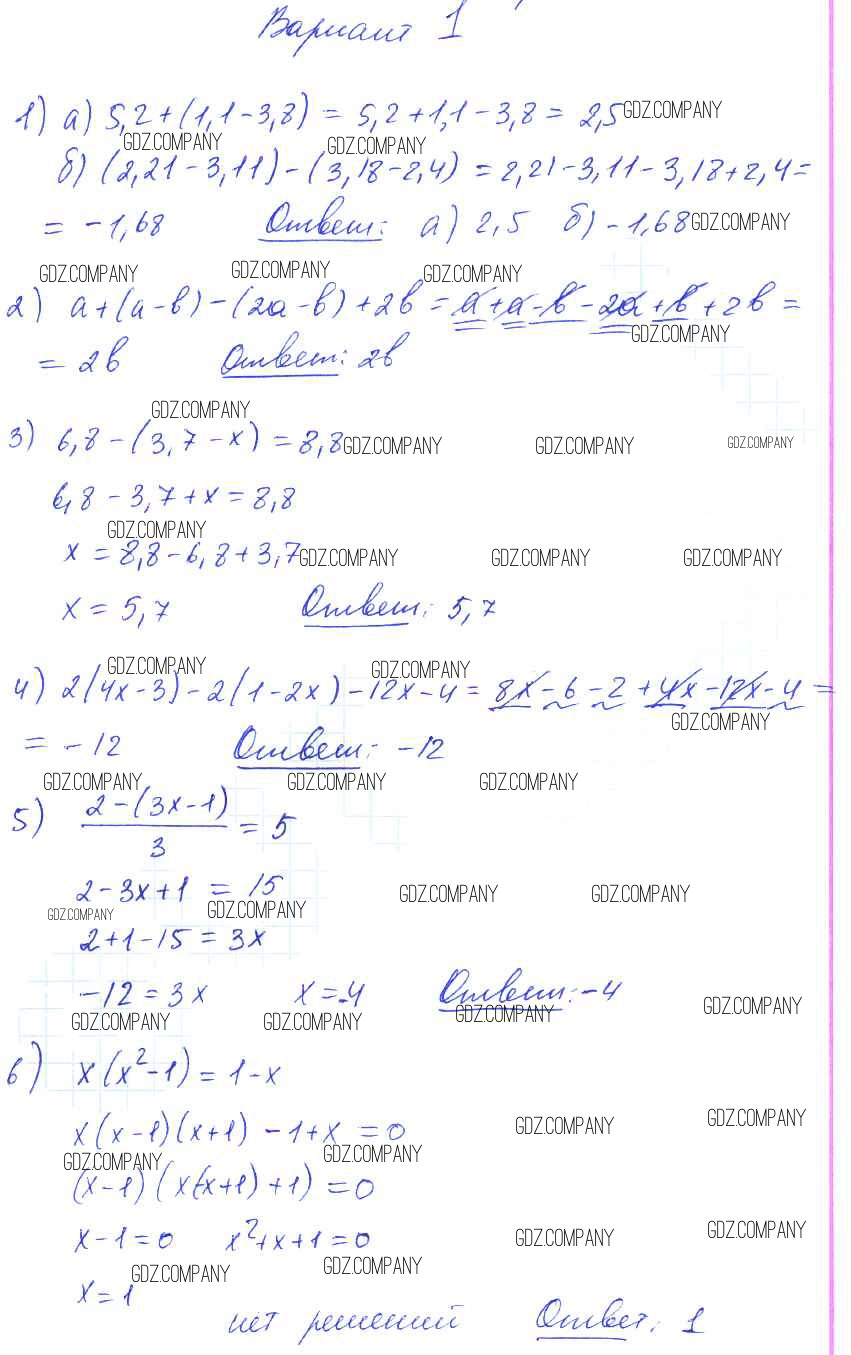 Вариант 1
1) а) 5,2+(1,1-3,8) = 5,2+1,1-3,8 = 2,5 GDZ.COMPANY
GDZ.COMPANY GDZ.COMPANY
б) (2,21-3,11)-(3,18-2,4) = 2,21-3,11-3,18+2,4=
= -1,68 Ответ: а) 2,5 б) -1,68 GDZ.COMPANY
GDZ.COMPANY GDZ.COMPANY GDZ.COMPANY
2) a+(a-b)-(2a-b)+2b = a+a-b-2a+b+2b =
GDZ.COMPANY
= 2b Ответ: 2b
GDZ.COMPANY
3) 6,8-(3,7-x) = 8,8 GDZ.COMPANY GDZ.COMPANY GDZ.COMPANY
6,8-3,7+x = 8,8
GDZ.COMPANY
x = 8,8-6,8+3,7 GDZ.COMPANY GDZ.COMPANY GDZ.COMPANY
x = 5,7 Ответ: 5,7
GDZ.COMPANY GDZ.COMPANY
4) 2(4x-3)-2(1-2x)-12x-4 = 8x-6-2+4x-12x-4 =
GDZ.COMPANY
= -12 Ответ: -12
GDZ.COMPANY GDZ.COMPANY GDZ.COMPANY
5) (2-(3x-1))/3 = 5
2-3x+1 = 15 GDZ.COMPANY GDZ.COMPANY
GDZ.COMPANY GDZ.COMPANY
2+1-15 = 3x
-12 = 3x x = -4 Ответ: -4 GDZ.COMPANY
GDZ.COMPANY GDZ.COMPANY GDZ.COMPANY
6) x(x²-1) = 1-x
x(x-1)(x+1) -1+x = 0 GDZ.COMPANY GDZ.COMPANY
GDZ.COMPANY GDZ.COMPANY
(x-1)(x(x+1)+1) = 0
x-1=0 x²+x+1=0 GDZ.COMPANY GDZ.COMPANY
GDZ.COMPANY GDZ.COMPANY
x=1
нет решений Ответ: 1